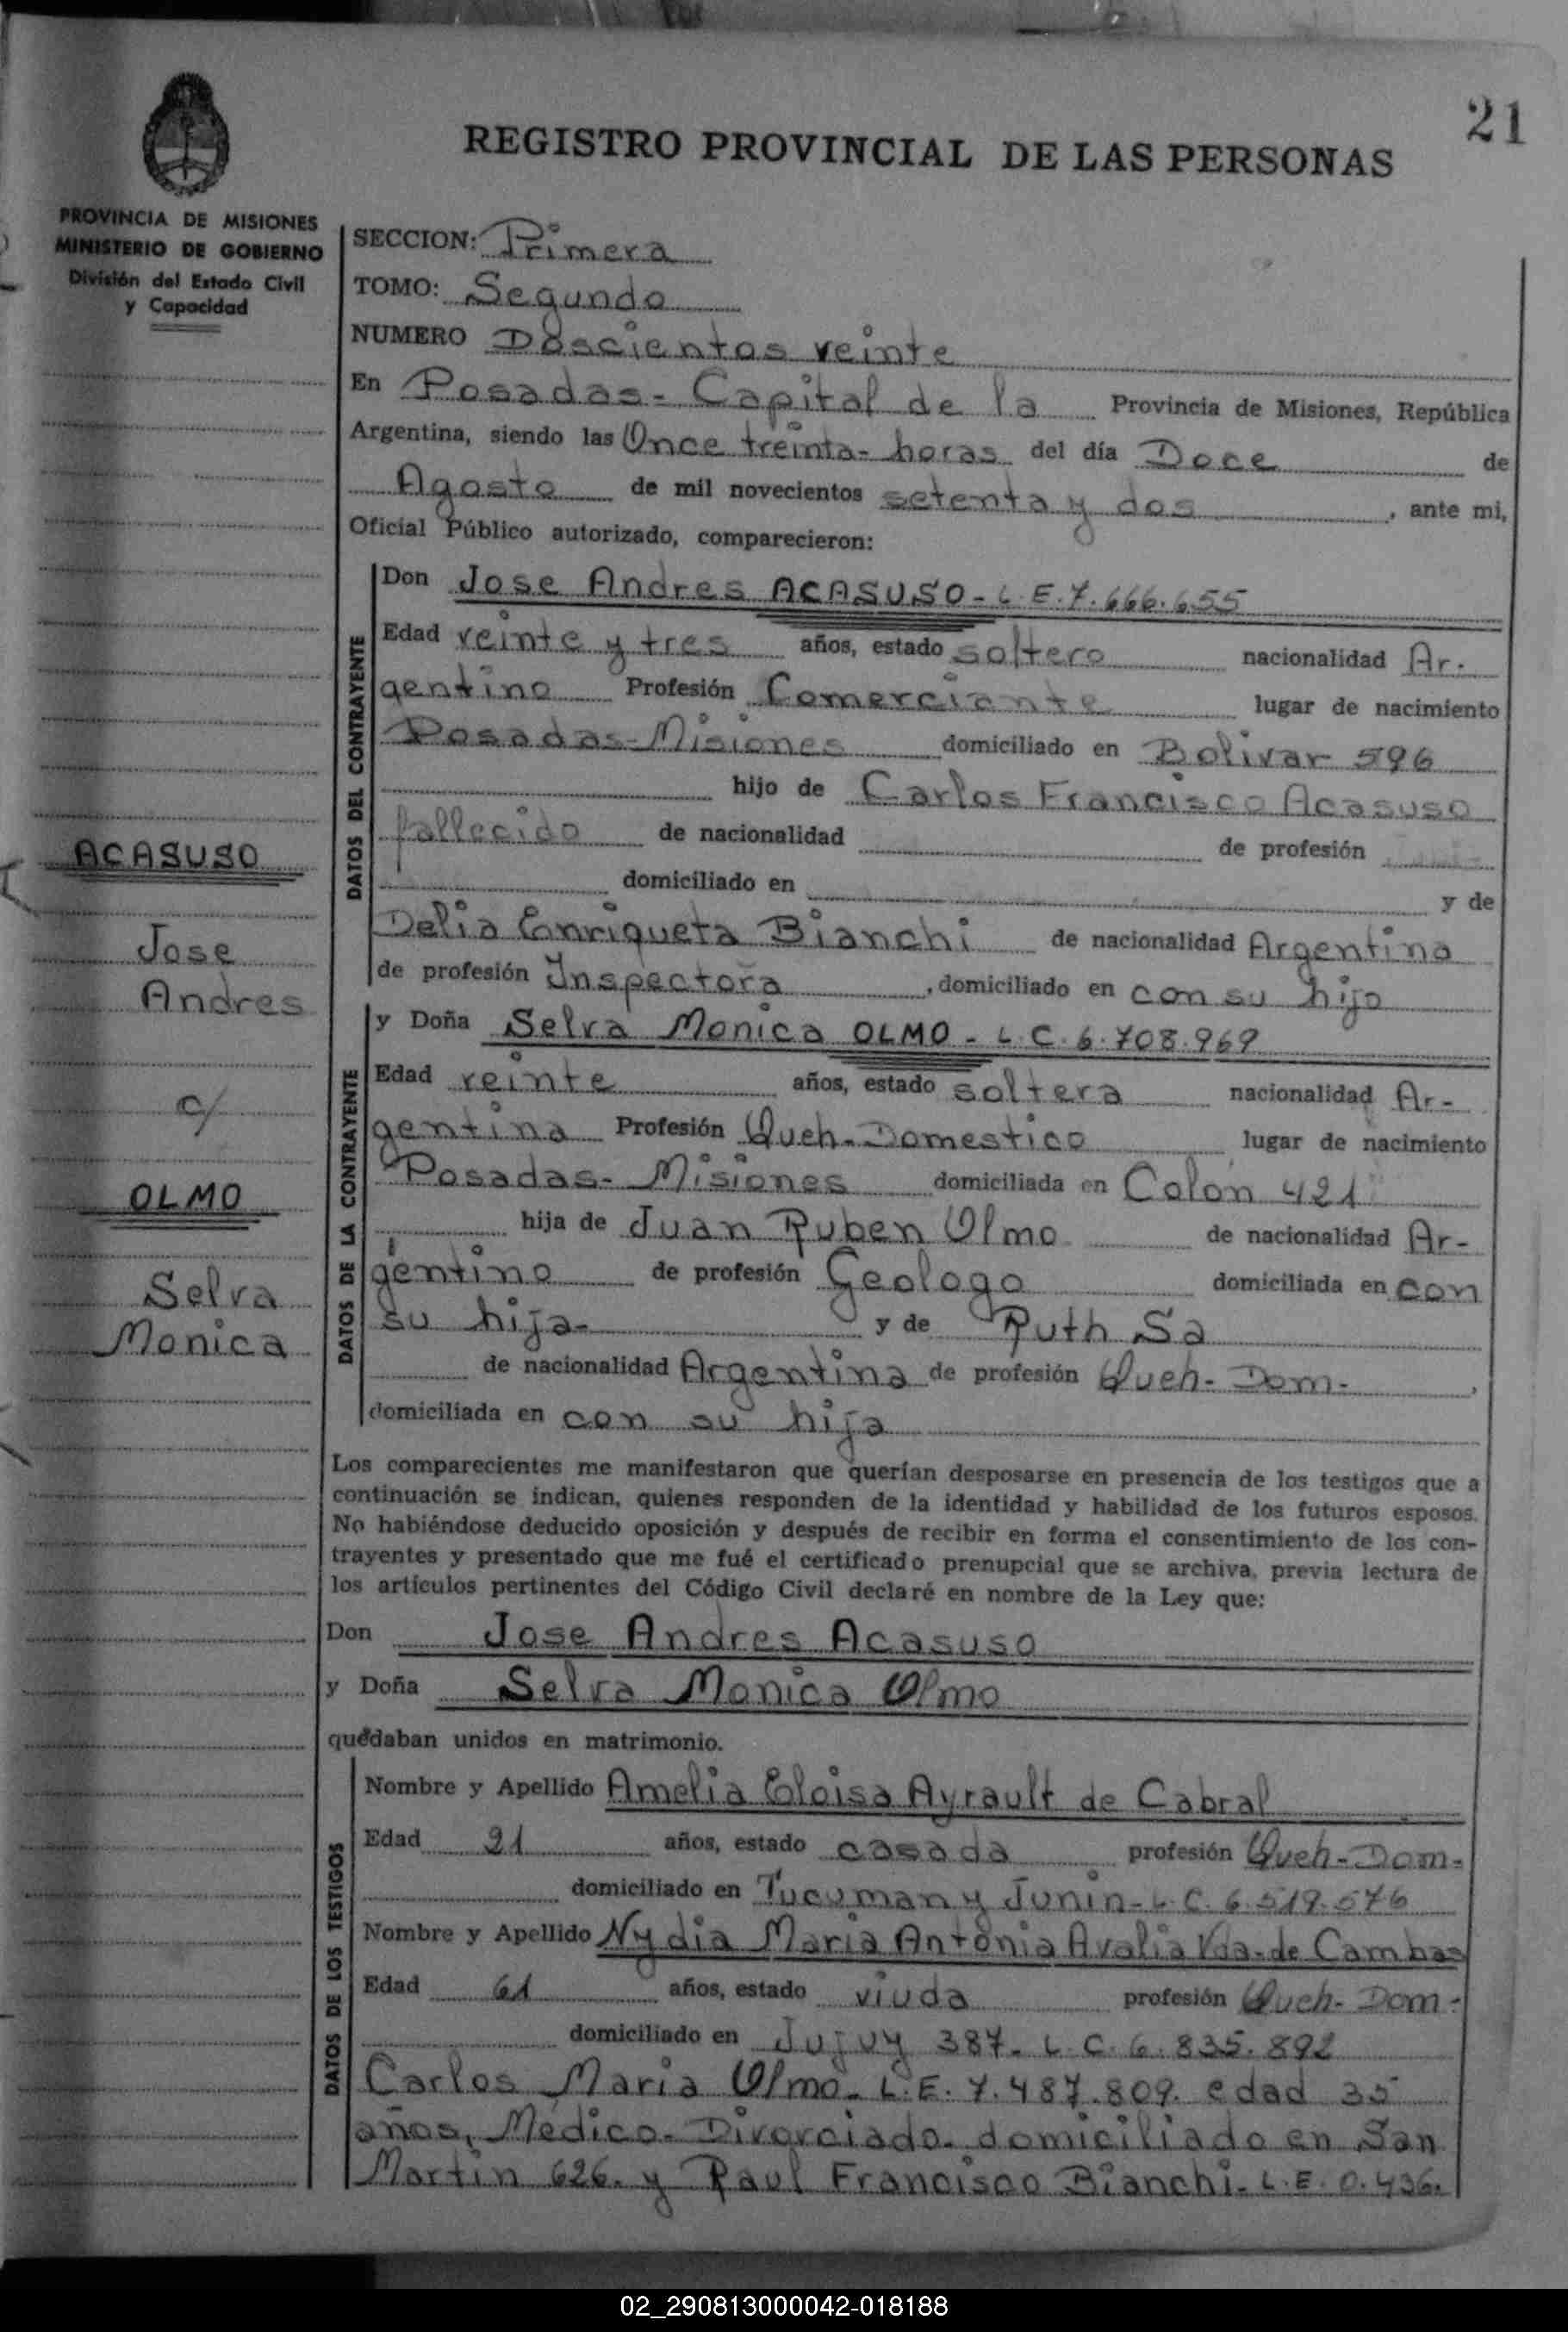 21
REGISTRO PROVINCIAL DE LAS PERSONAS
PROVINCIA DE MISIONES
MINISTERIO DE GOBIERNO
División del Estado Civil
y Capacidad
SECCION: Primera
TOMO: Segundo
NUMERO Doscientos veinte
En Posadas - Capital de la Provincia de Misiones, República
Argentina, siendo las Once treinta - horas del día Doce de
Agosto de mil novecientos setenta y dos, ante mi,
Oficial Público autorizado, comparecieron:
DATOS DEL CONTRAYENTE
Don Jose Andres ACASUSO - L.E. 7.666.655
Edad veinte y tres años, estado soltero nacionalidad Ar-
gentino Profesión Comerciante lugar de nacimiento
Posadas - Misiones domiciliado en Bolivar 596
hijo de Carlos Francisco Acasuso
fallecido de nacionalidad de profesión
domiciliado en y de
Delia Enriqueta Bianchi de nacionalidad Argentina
de profesión Inspectora, domiciliado en con su hijo
DATOS DE LA CONTRAYENTE
y Doña Selva Monica OLMO - L.C. 6.708.969
Edad veinte años, estado soltera nacionalidad Ar-
gentina Profesión Queh-Domestico lugar de nacimiento
Posadas - Misiones domiciliada en Colón 421
hija de Juan Ruben Olmo de nacionalidad Ar-
gentino de profesión Geologo domiciliada en con
su hija- y de Ruth Sa
de nacionalidad Argentina de profesión Queh- Dom-,
domiciliada en con su hija
ACASUSO
Jose
Andres
c/
OLMO
Selva
Monica
Los comparecientes me manifestaron que querían desposarse en presencia de los testigos que a
continuación se indican, quienes responden de la identidad y habilidad de los futuros esposos.
No habiéndose deducido oposición y después de recibir en forma el consentimiento de los con-
trayentes y presentado que me fué el certificado prenupcial que se archiva, previa lectura de
los artículos pertinentes del Código Civil declaré en nombre de la Ley que:
Don Jose Andres Acasuso
y Doña Selva Monica Olmo
quedaban unidos en matrimonio.
DATOS DE LOS TESTIGOS
Nombre y Apellido Amelia Eloisa Ayrault de Cabral
Edad 21 años, estado casada profesión Queh-Dom-
domiciliado en Tucuman y Junin - L.C. 6.519.576
Nombre y Apellido Nydia Maria Antonia Avalia Vda. de Cambas
Edad 61 años, estado viuda profesión Queh- Dom-
domiciliado en Jujuy 387. L.C. 6.835.892
Carlos Maria Olmo - L.E. 7.487.809. edad 35
años, Médico - Divorciado - domiciliado en San
Martin 626. y Raul Francisco Bianchi - L.E. 0.436.
02_290813000042-018188